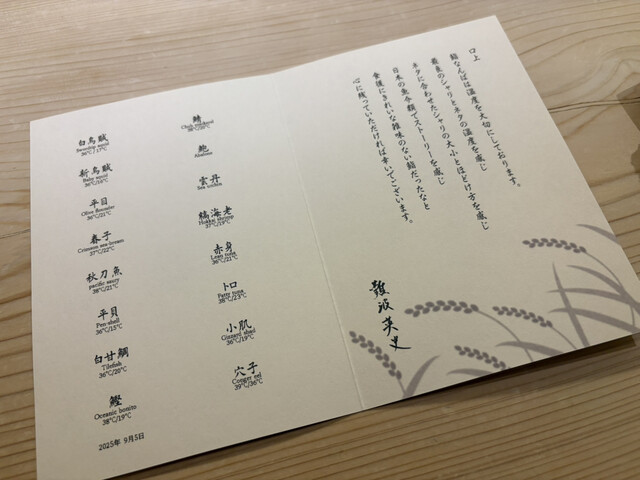 白烏賊
36°C / 17°C
新烏賊
Baby squid
36°C/16°C
平目
Olive flounder
36°C/21°C
春子
Crimson sea bream
37°C/22°C
秋刀魚
pacific saury
38°C/21°C
平貝
Pen-shell
36°C/15°C
白甘鯛
Tilefish
36°C/20°C
鰹
Oceanic bonito
38°C/19°C
2025年 9月5日
鯖
Chub mackerel
鮑
Abalone
雲丹
Sea urchin
縞海老
Hokkai shrimp
37°C/19°C
赤身
Lean tuna
36°C/21°C
トロ
Fatty tuna
38°C/23°C
小肌
Gizzard shad
36°C/19°C
穴子
Conger eel
39°C/36°C
口上
鮨なんばは温度を大切にしております。
最良のシャリとネタの温度を感じ
ネタに合わせたシャリの大小とほどけ方を感じ
日本の魚介類でストーリーを感じ
食後にきれいな雑味のない鮨だったなと
心に残っていただければ幸いでございます。
難波英史